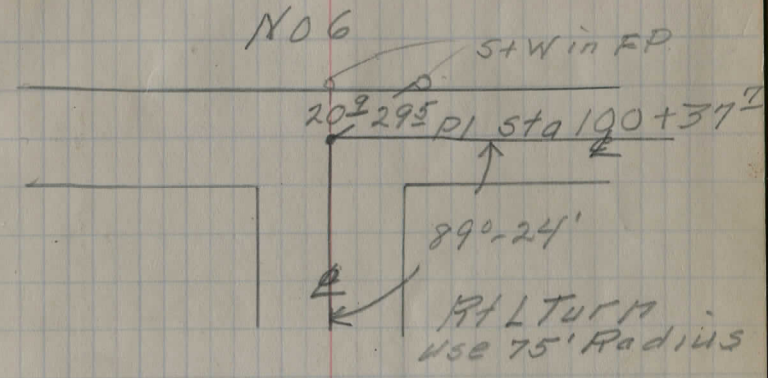 NO 6
S+W in FP
20⁹ 29⁵ PI Sta 190+37⁷
℄
89°-24'
℄
Rt L Turn
use 75' Radius